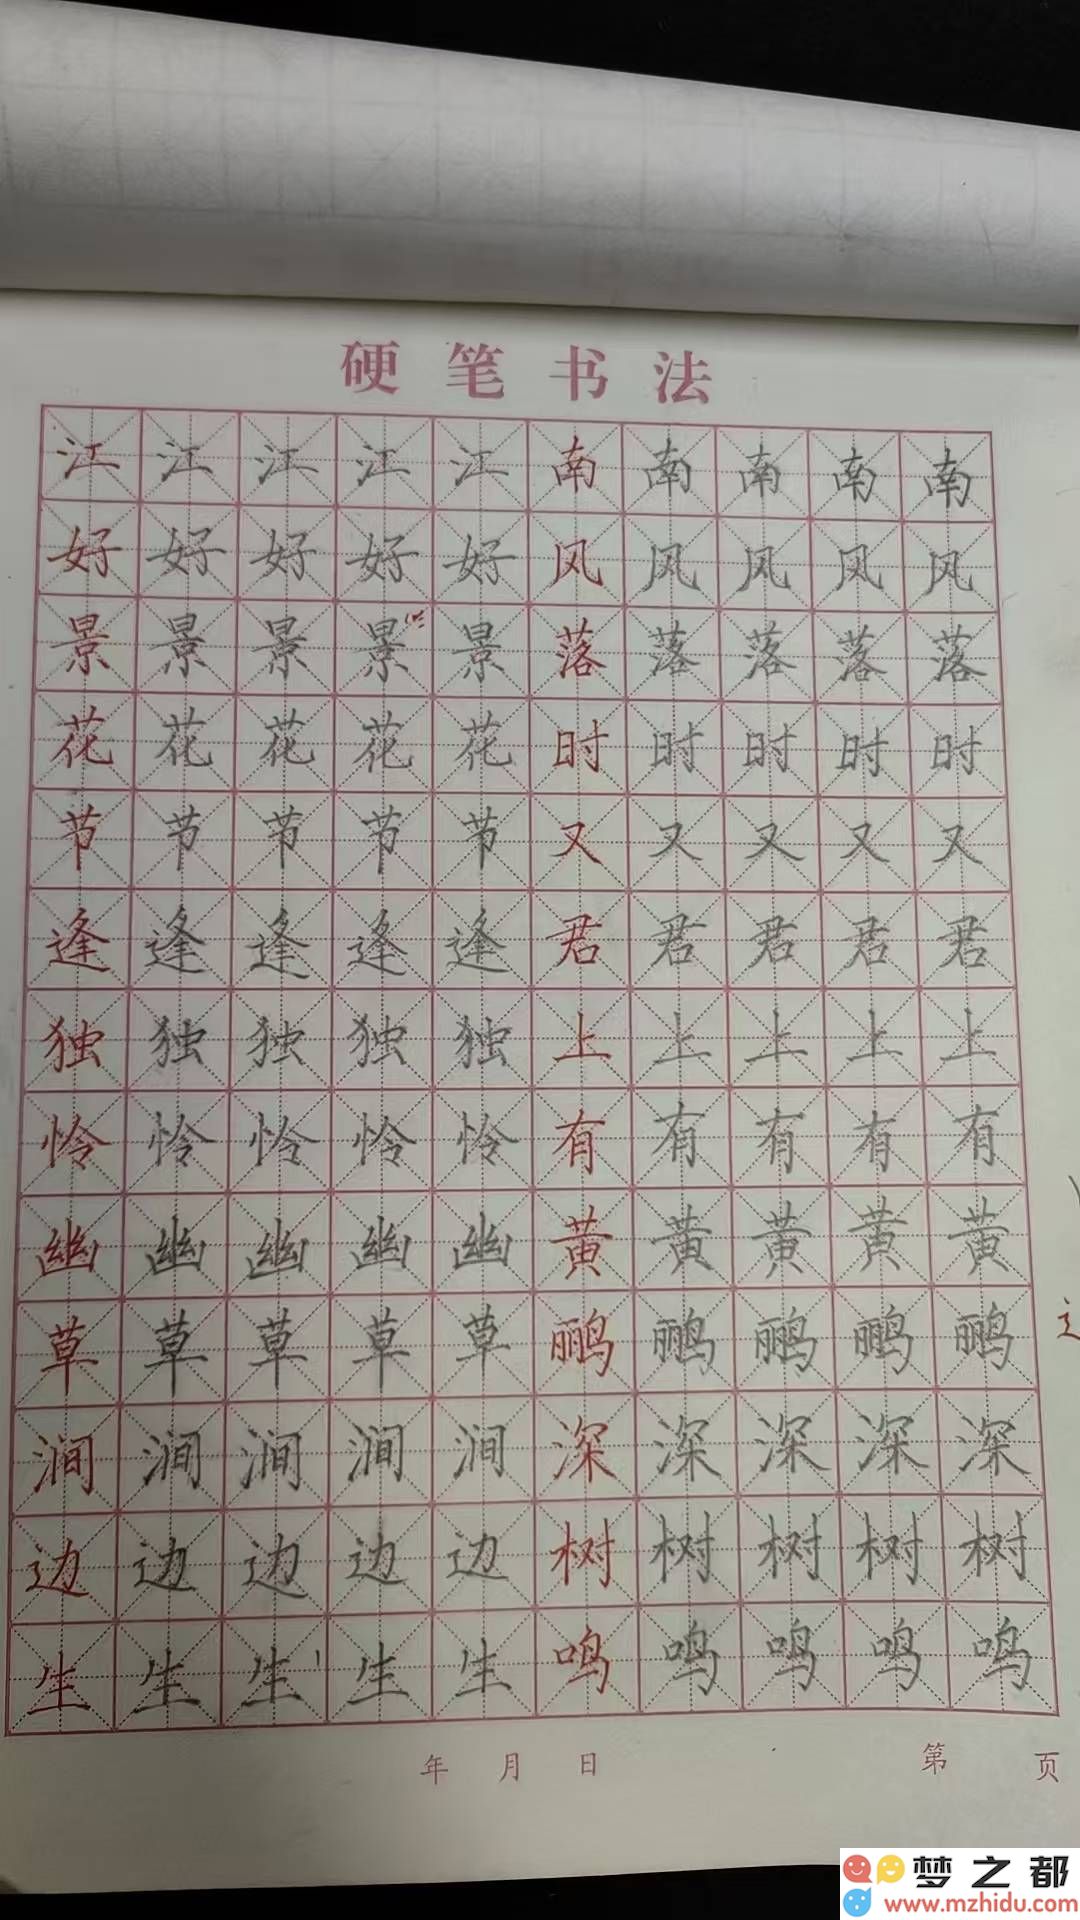 硬笔书法
江江江江江南南南南南
好好好好好风风风风风
景景景景景落落落落落
花花花花花时时时时时
节节节节节又又又又又
逢逢逢逢逢君君君君君
独独独独独上上上上上
怜怜怜怜怜有有有有有
幽幽幽幽幽黄黄黄黄黄
草草草草草鹂鹂鹂鹂鹂
涧涧涧涧涧深深深深深
边边边边边树树树树树
生生生生生鸣鸣鸣鸣鸣
年 月 日 第 页
梦之都
www.mzhidu.com